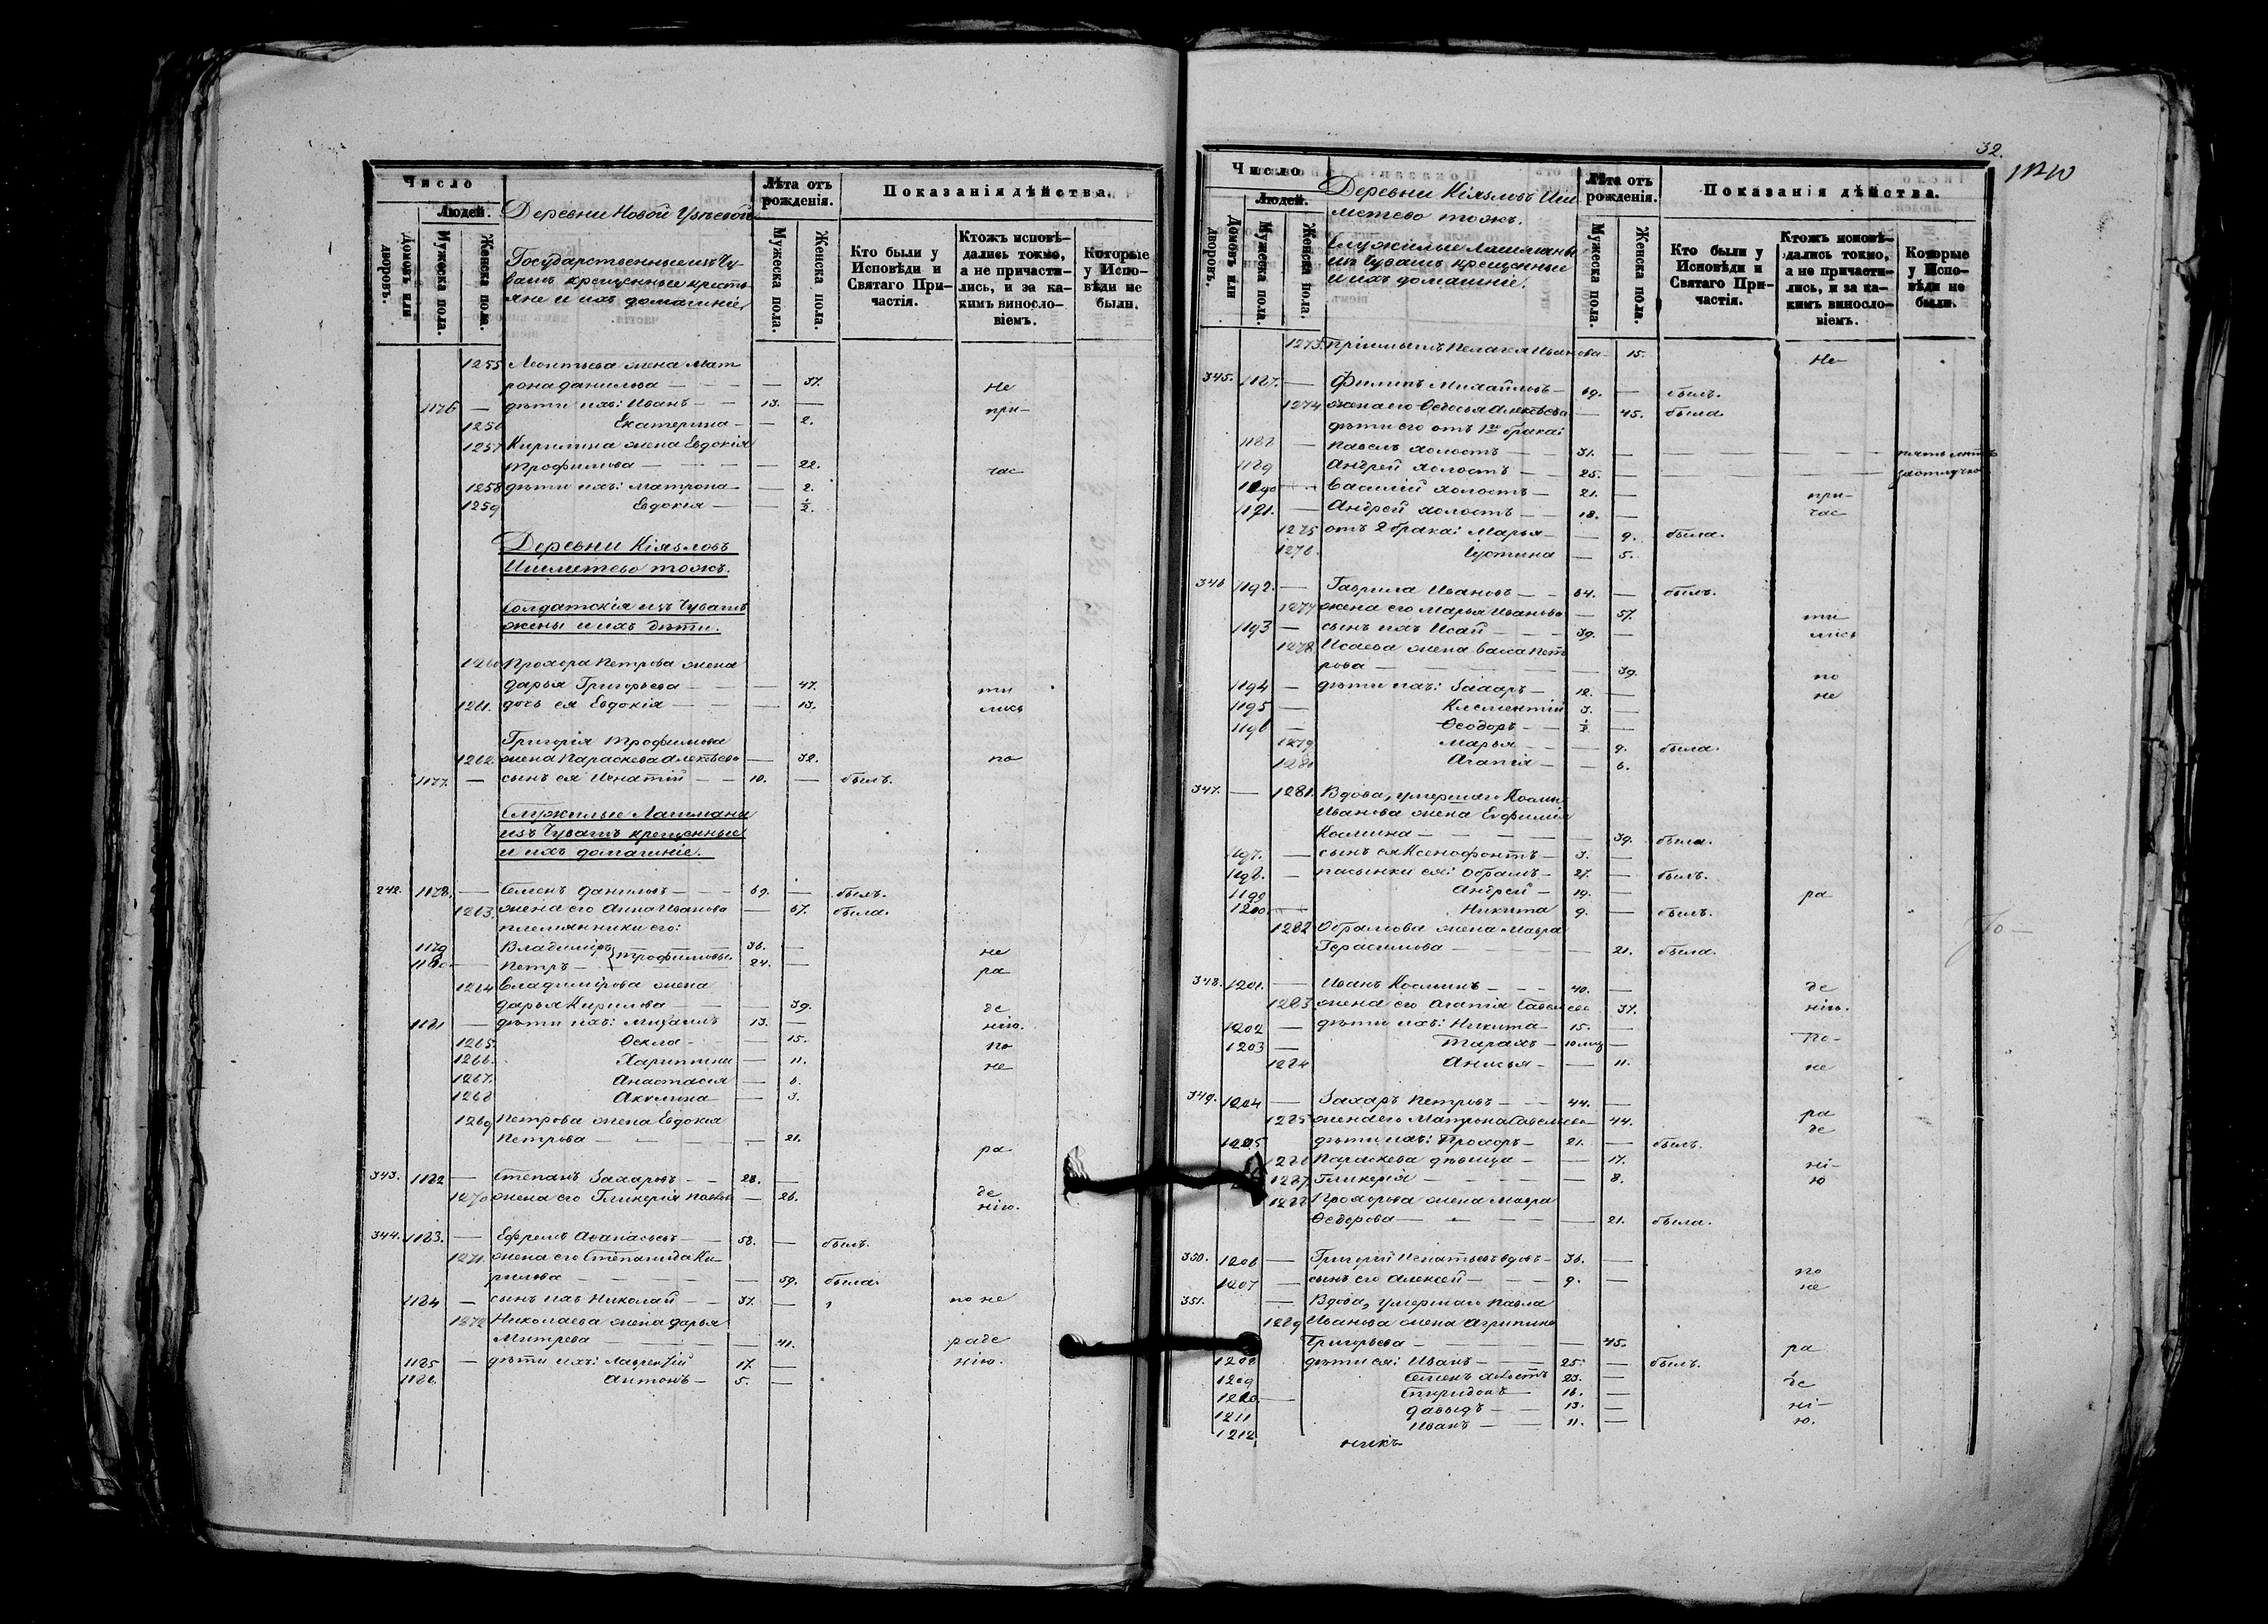 Число
Людей.
Домовъ или дворовъ.
Мужеска пола.
Женска пола.
Деревни Новой Узѣевой
Государственные изъ Чу-
вашъ крещенные кресть-
яне и ихъ домашніе.
Лѣта отъ рожденія.
Мужеска пола.
Женска пола.
Показанія дѣйства.
Кто были у Исповѣди и Святаго При-частія.
Ктожъ исповѣ-дались токмо, а не причасти-лись, и за ка-кимъ винослo-віемъ.
Которые у Испо-вѣди не были.
1255 Леонтьева жена Мат
рона Данилова — 37. Не
1176 — дѣти ихъ: Иванъ — 13. — при-
1256 Екатерина — 2.
1257 Кирилина жена Евдокія
Трофимова — 22. час
1258 дѣти ихъ: Матрона — 2.
1259 Евдокія — ½.
Деревни Кіязловъ
Ишметево тожъ.
Солдатскія изъ Чувашъ
жены и ихъ дѣти.
1260 Прохора Петрова жена
Дарья Григорьева — 47. ти
1261. дочь ея Евдокія — 13. лись
Григорія Трофимова
1262. жена Параскева Алексѣева — 32. по
1177. — сынъ ея Игнатій — 10. — былъ.
Служилые Лашманы
изъ Чувашъ крещенные
и ихъ домашніе.
242. 1178. — Семенъ Даниловъ — 69. — былъ.
1263. жена его Анна Иванова — 67. была.
племянники его:
1179 Владиміръ } Трофимовы 36. — не
1180 — Петръ — 24. — ра
1264 Владимірова жена
Дарья Кирилова — 39. де
1181 — дѣти ихъ: Михаилъ 13. — нію.
1265. Ѳекла — 15. по
1266. Харитина — 11. не
1267. Анастасія — 6.
1268 Акулина — 3.
1269 Петрова жена Евдокія
Петрова — 21. ра
343. 1182 — Степанъ Захаровъ — 28. —
1270 жена его Гликерія Павлов — 26. де
нію.
344. 1183. — Ефремъ Аѳанасьевъ — 58. — былъ.
1271. жена его Степанида Ки-
рилова — 59. была.
1184 — сынъ ихъ Николай — 37. — по не
1272 Николаева жена Дарья
Митрева — 41. раде
1185 — дѣти ихъ: Лаврентій 17. — нію.
1186. Антонъ — 5. —
32.
Число
Людей.
Домовъ или дворовъ.
Мужеска пола.
Женска пола.
Деревни Кіязловъ Иш
метево тожъ.
Служилые Лашманы
изъ Чувашъ крещенные
и ихъ домашніе.
Лѣта отъ рожденія.
Мужеска пола.
Женска пола.
Показанія дѣйства.
Кто были у Исповѣди и Святаго При-частія.
Ктожъ исповѣ-дались токмо, а не причасти-лись, и за ка-кимъ винослo-віемъ.
Которые у Испо-вѣди не были.
1273. Пріимышъ Пелагея Иванова — 15. Не
345. 1187. — Филипъ Михайловъ — 69. — былъ.
1274 жена его Ѳедосья Алексѣева — 45. была.
дѣти его отъ 1го брака:
1188 — Павелъ холостъ — 31. —
1189 Андрей холостъ — 25. — за отлучко
1190 Василій холостъ — 21. — при-
1191. — Андрей холостъ — 18. — час
1275 отъ 2 брака: Марья — 9. была.
1276. Іустина — 5.
346 1192. — Гаврила Ивановъ — 64. — былъ.
1277 жена его Марья Иванова — 57. ти
1193 — сынъ ихъ Исай — 39. — лись
1278. Исаева жена Васа Пет
рова — 39. по
1194 — дѣти ихъ: Захаръ — 12. — не
1195 — Клементій 3. —
1196 — Ѳеодоръ — ½ —
1279 Марья — 9. была.
1280 Агапія — 6.
347. — 1281. Вдова, умершаго Козмы
Иванова жена Евфимія
Козмина — 39. была.
1197. — сынъ ея Ксенофонтъ — 3. —
1198. — пасынки ея: Обрамъ — 27. — былъ.
1199 Андрей — 19. — ра
1200. Никита 9. — былъ.
1282 Обрамова жена Мавра
Герасимова — 21. была.
348. 1201. — Иванъ Козминъ — 40. — де
1283. жена его Агапія Савельева 37. нію.
1202 — дѣти ихъ: Никита — 15. —
1203 — Тарахъ — 10 мец — По-
1284 Анисья — 11. не
349. 1204 — Захаръ Петровъ — 44. —
1285 жена его Матрона Савельева — 44. ра
де
1205 дѣти ихъ: Прохоръ — 21. — былъ.
1286 Параскева дѣвица — 17. ні-
1287. Гликерія — 8. ю
1288 Прохорова жена Мавра
Ѳедорова — 21. была.
350. 1206 — Григорій Игнатьевъ вдовъ — 36. —
1207 — сынъ его Алексѣй — 9. — по
не
351. — Вдова, умершаго Павла
1289 Иванова жена Агрипина
Григорьева — 45. ра
1208 дѣти ея: Иванъ — 25. — былъ.
1209 Семенъ холостъ 23. — де
1210. — Спиридонъ 16. — ні-
1211 Давыдъ — 13. — ю.
1212. Иванъ — 11. —